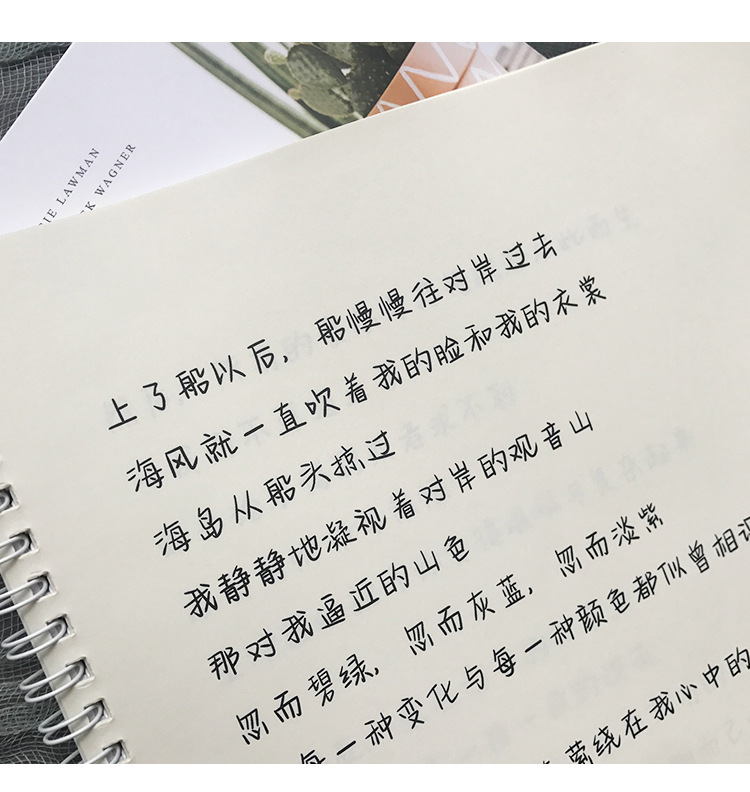 IE LAWMAN
CK WAGNER
上了船以后，船慢慢往对岸过去
海风就一直吹着我的脸和我的衣裳
海岛从船头掠过
我静静地凝视着对岸的观音山
那对我逼近的山色
忽而碧绿，忽而灰蓝，忽而淡紫
每一种变化与每一种颜色都似曾相识
萦绕在我心中的